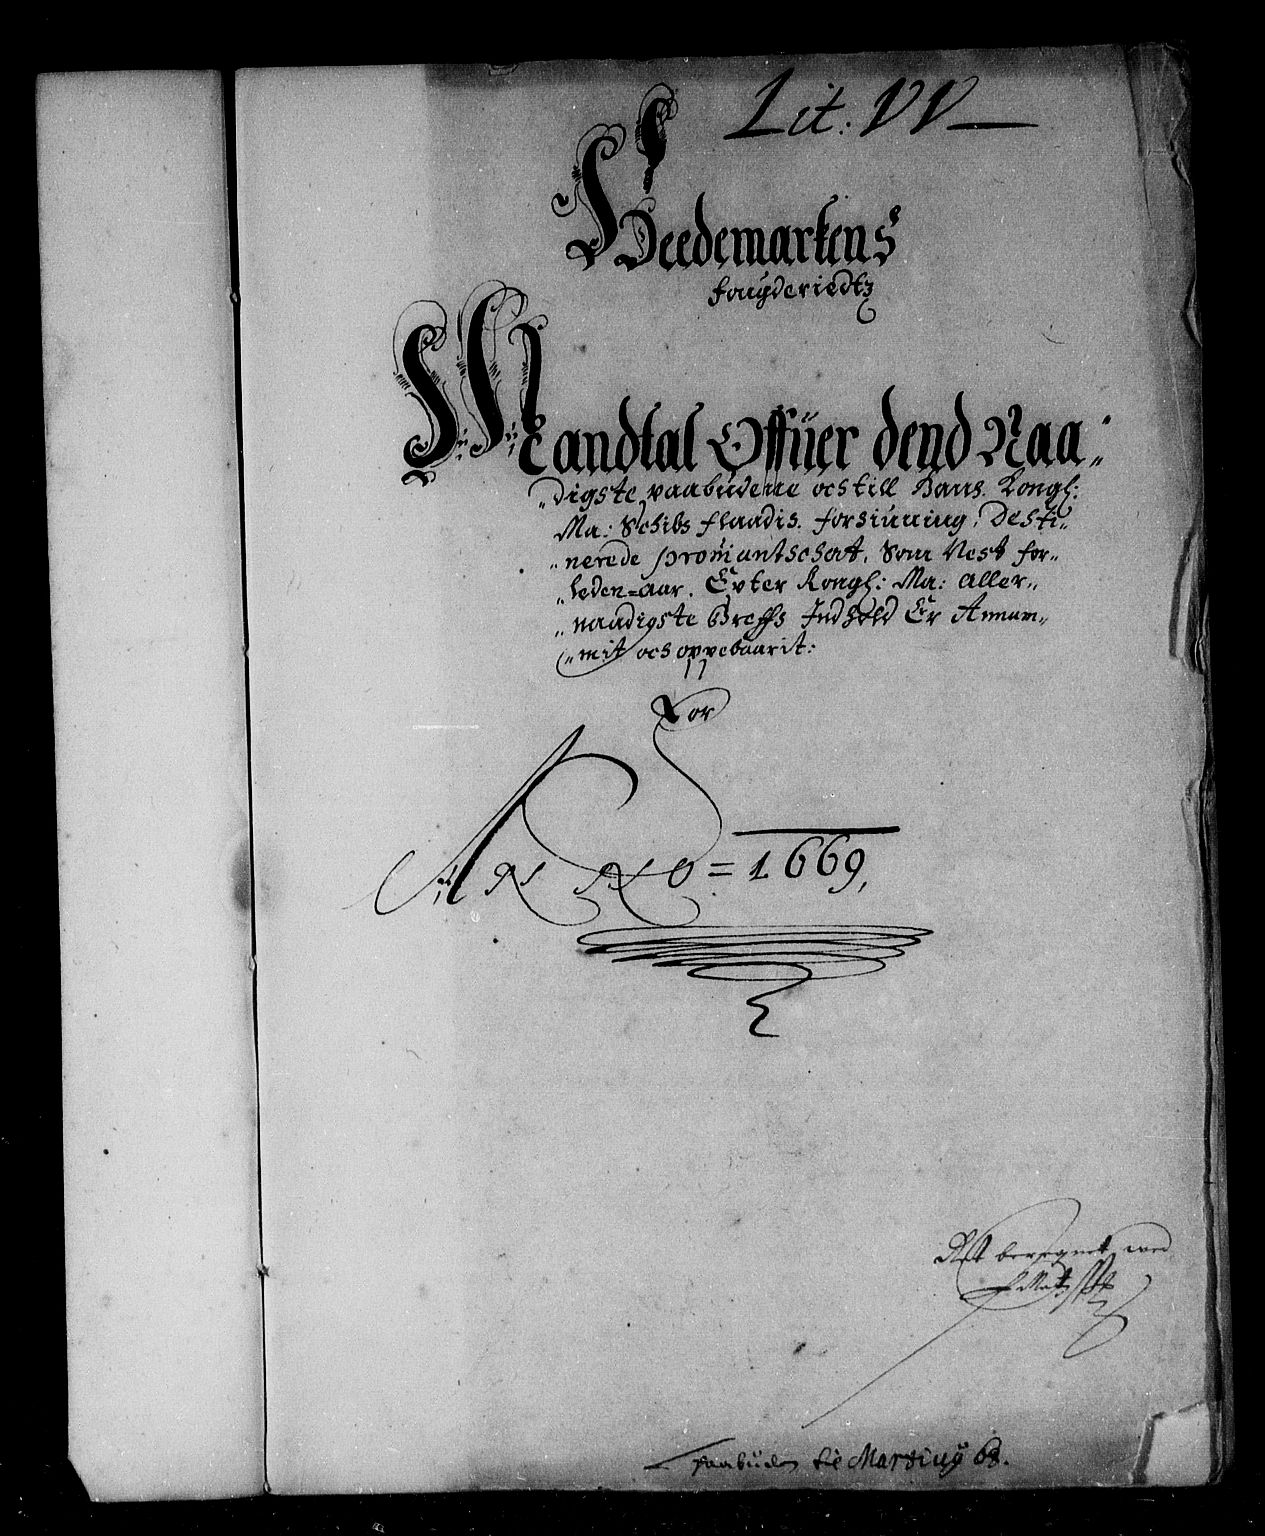 Lit: VV
Heedemarkens
fougderiedtz
Mandtal Offuer dend Naa„
„digste paabudene och till Hans. Kongl:
Ma: Schibs flaadis. forsiunning, Desti„
„nerede proviantschat, Som Nest for„
„leden=aar. Epter Kongl: Ma: Aller„
„naadigste Breffs Indhold Er Annam„
„mit och oppebaarit:
For
ANNO = 1669,
Ret beregnet wed
paabuden die Martiuy 68.